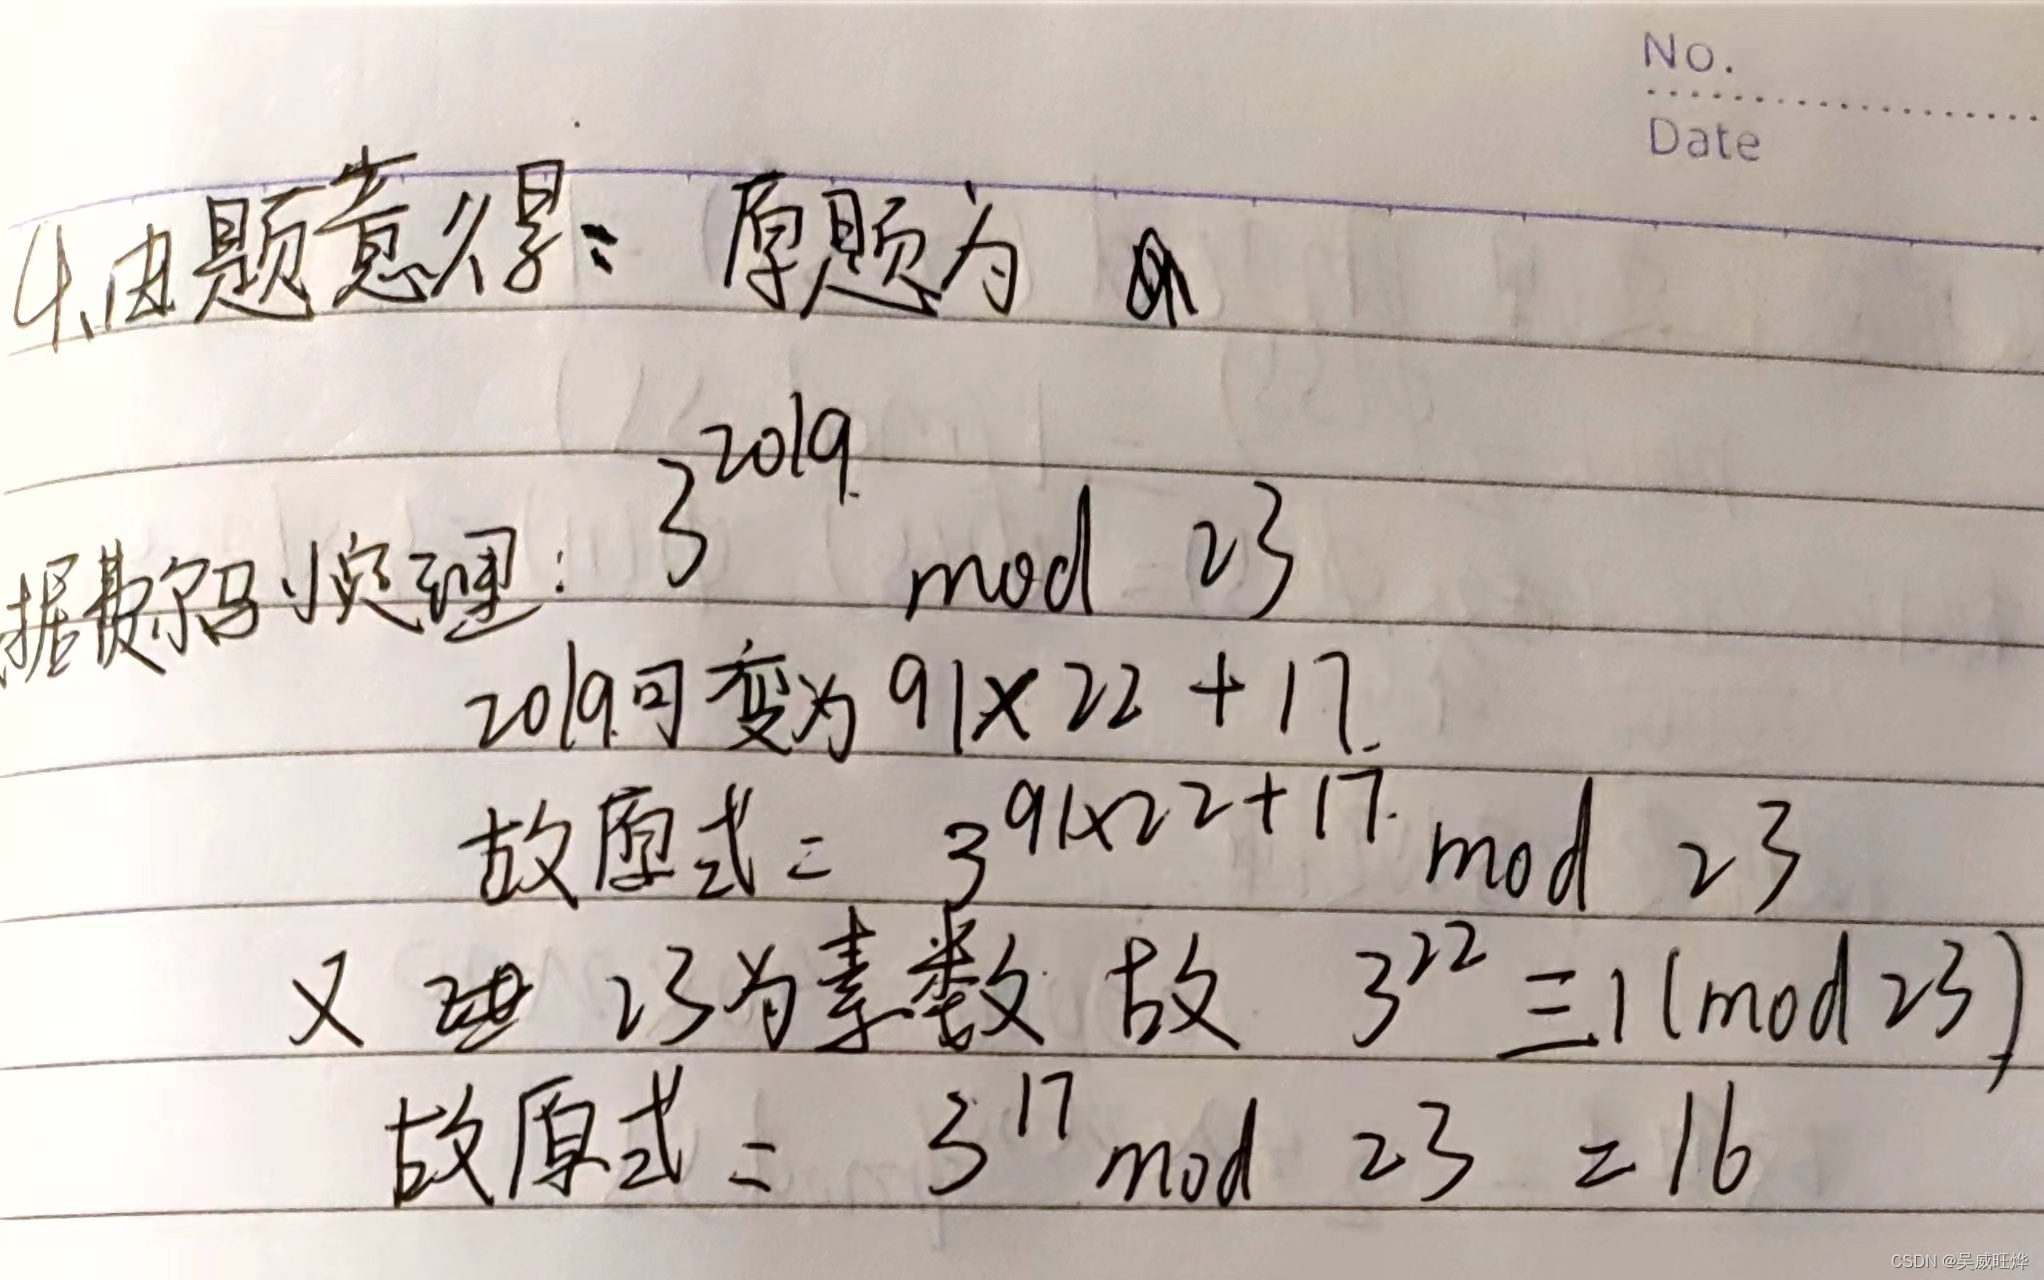 No.
Date
4.由题意得: 原题为
3^2019 mod 23
据费尔马小定理:
2019可变为 91×22+17.
故原式= 3^91×22+17. mod 23
又 23为素数 故 3^22≡1(mod 23)
故原式= 3^17 mod 23 =16
CSDN @吴威旺烨